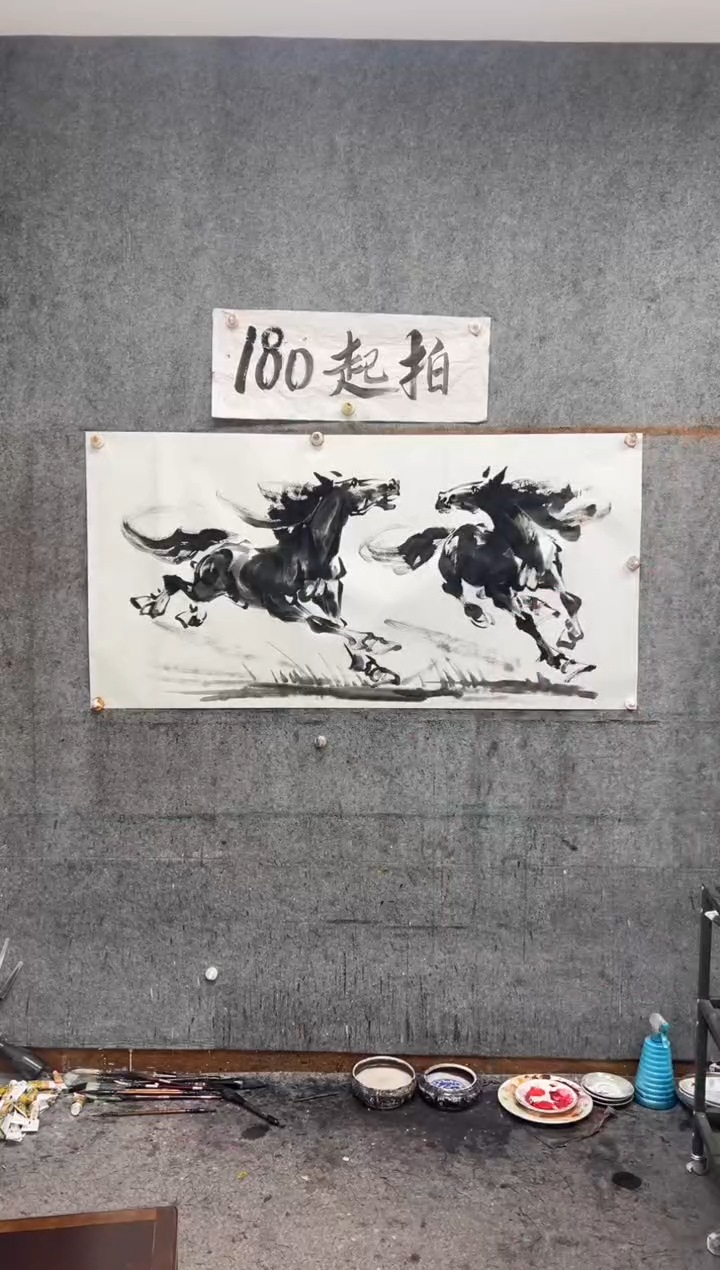 180起拍